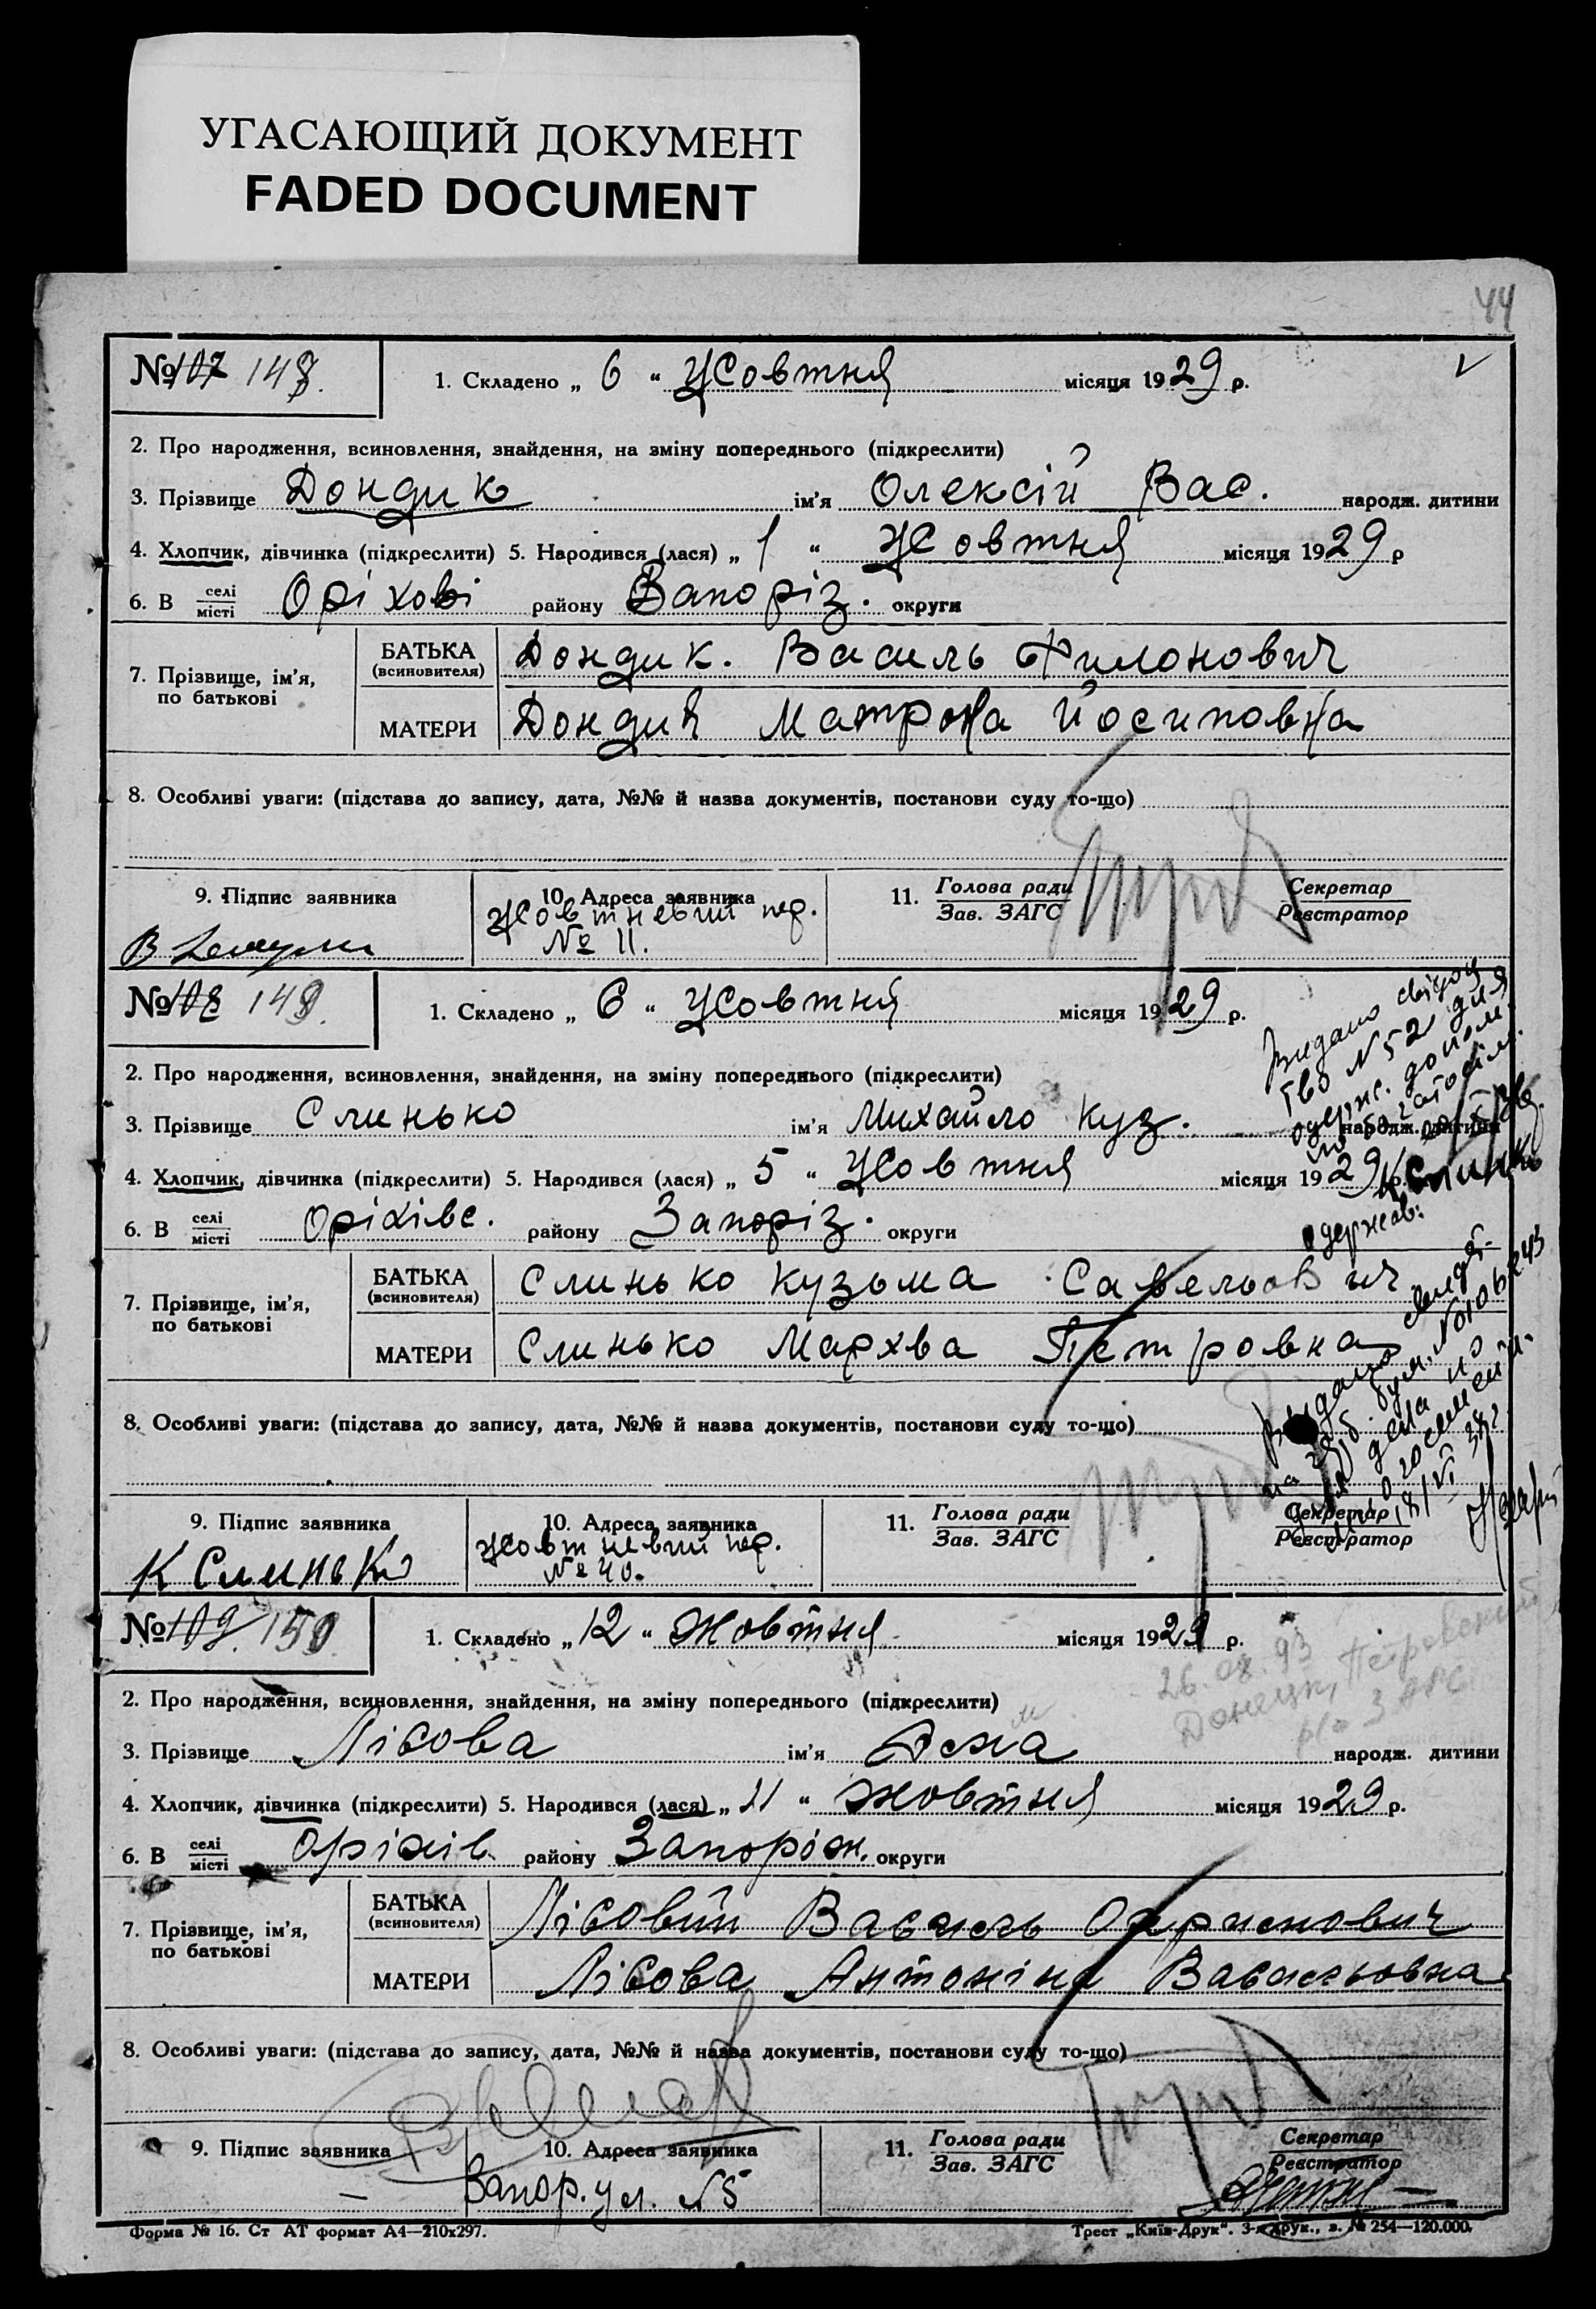 УГАСАЮЩИЙ ДОКУМЕНТ
FADED DOCUMENT
44
№ 107 148. 1. Складено „ 6 “ Жовтня місяця 1929 р.
2. Про народження, всиновлення, знайдення, на зміну попереднього (підкреслити)
3. Прізвище Дондик ім'я Олексій Вас. народж. дитини
4. Хлопчик, дівчинка (підкреслити) 5. Народився (лася) „ 1 “ Жовтня місяця 1929 р
6. В селі/місті Оріхові району Запоріз. округи
7. Прізвище, ім'я, по батькові
БАТЬКА (всиновителя) Дондик. Василь Филонович
МАТЕРИ Дондик Матрона Йосиповна
8. Особливі уваги: (підстава до запису, дата, №№ й назва документів, постанови суду то-що)
9. Підпис заявника 10. Адреса заявника 11. Голова ради/Зав. ЗАГС Секретар/Реєстратор
Жовтневий пер.
№ 11.
№ 108 149. 1. Складено „ 6 “ Жовтня місяця 1929 р.
2. Про народження, всиновлення, знайдення, на зміну попереднього (підкреслити)
3. Прізвище Слинько ім'я Михайло Куз. народж. дитини
4. Хлопчик, дівчинка (підкреслити) 5. Народився (лася) „ 5 “ Жовтня місяця 1929 р.
6. В селі/місті Оріхівс. району Запоріз. округи
7. Прізвище, ім'я, по батькові
БАТЬКА (всиновителя) Слинько Кузьма Савельович
МАТЕРИ Слинько Мархва Петровна
Видано свідоц
тво N 52 для
одерж. допом.
К Слинько
одержав:
8. Особливі уваги: (підстава до запису, дата, №№ й назва документів, постанови суду то-що)
9. Підпис заявника 10. Адреса заявника 11. Голова ради/Зав. ЗАГС Секретар/Реєстратор
К Слинько Жовтневий пер.
№ 40.
№ 109. 150. 1. Складено „ 12 “ Жовтня місяця 1929 р.
26.08.93
Донецк, Петровский
р/о ЗАГС
2. Про народження, всиновлення, знайдення, на зміну попереднього (підкреслити)
3. Прізвище Лісова ім'я народж. дитини
4. Хлопчик, дівчинка (підкреслити) 5. Народився (лася) „ 11 “ Жовтня місяця 1929 р.
6. В селі/місті Оріхів району Запоріж. округи
7. Прізвище, ім'я, по батькові
БАТЬКА (всиновителя) Лісовий Василь
МАТЕРИ Лісова Антоніна Васильовна
8. Особливі уваги: (підстава до запису, дата, №№ й назва документів, постанови суду то-що)
9. Підпис заявника 10. Адреса заявника 11. Голова ради/Зав. ЗАГС Секретар/Реєстратор
— Запор. ул. N 5
Форма № 16. Ст АТ формат А4—210х297. Трест „Київ-Друк“. 3-я друк., з. № 254—120.000.